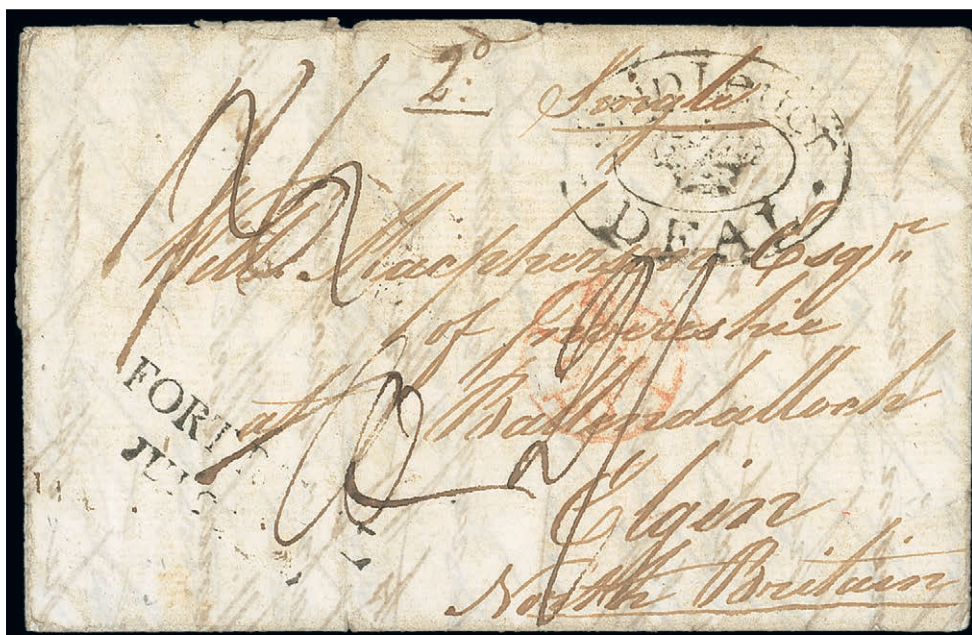 2º
Single
INDIA LETTER
DEAL
Macpherson Esqr
of Invereshie
at Ballendalloch
Elgin
North Britain
FORT
JUN